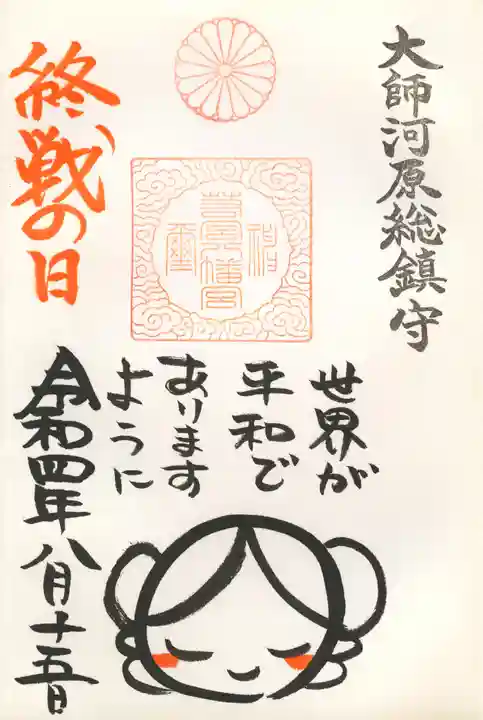 大師河原総鎮守
世界が
平和で
あります
ように
終戦の日
令和四年八月十五日